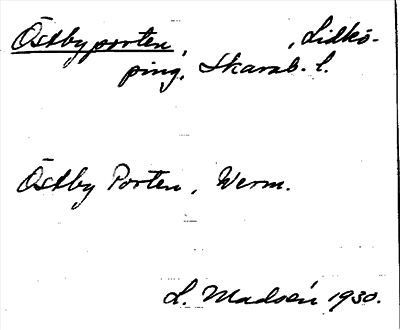 Östbyporten, , Lidkö-
ping, Skarab. l.
Östby Porten, Werm.
L. Madsén 1930.